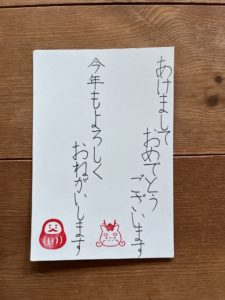 あけまして
おめでとう
ございます
今年もよろしく
おねがいします